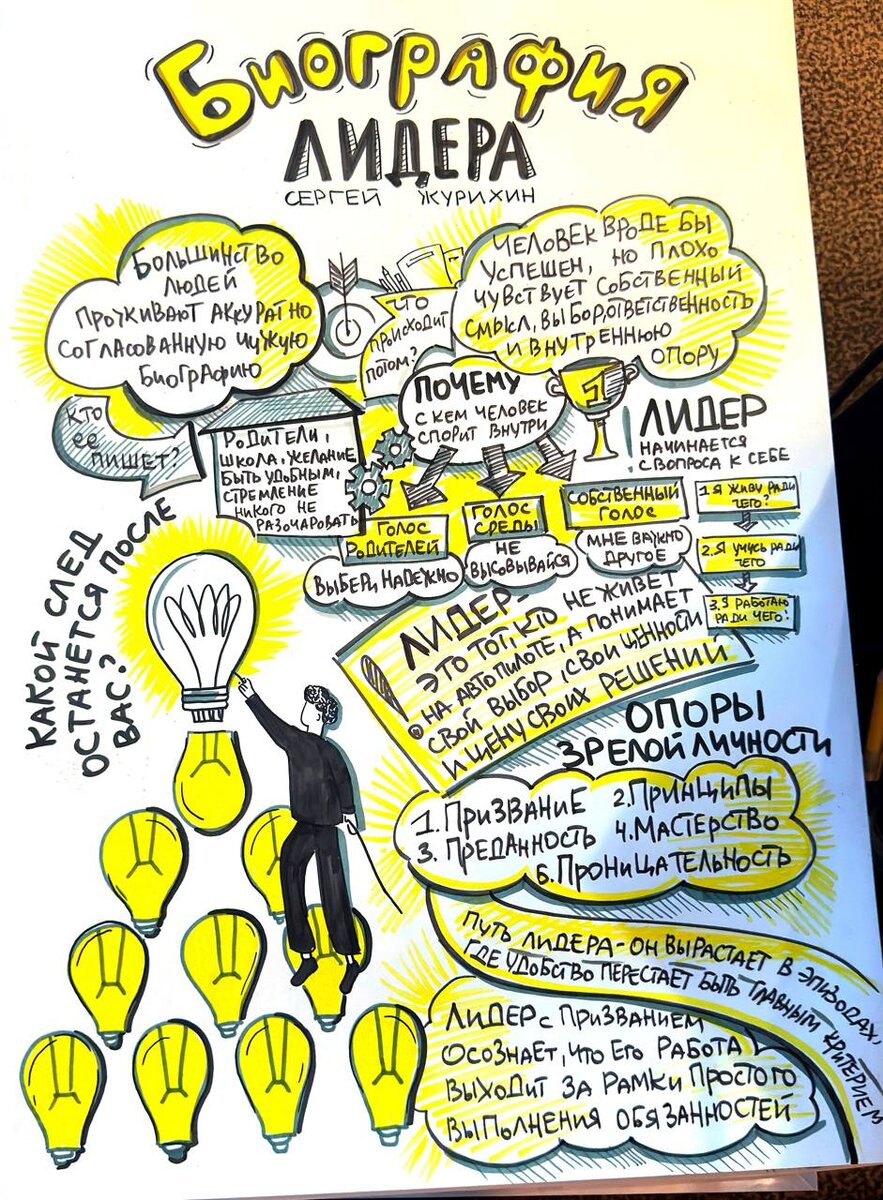 Биография
ЛИДЕРА
СЕРГЕЙ ЖУРИХИН
БОЛЬШИНСТВО
ЛЮДЕЙ
ПРОЖИВАЮТ АККУРАТНО
СОГЛАСОВАННУЮ ЧУЖУЮ
БИОГРАФИЮ
ЧТО
ПРОИСХОДИТ
ПОТОМ?
ЧЕЛОВЕК ВРОДЕ БЫ
УСПЕШЕН, НО ПЛОХО
ЧУВСТВУЕТ СОБСТВЕННЫЙ
СМЫСЛ, ВЫБОР, ОТВЕТСТВЕННОСТЬ
И ВНУТРЕННЮЮ
ОПОРУ
КТО
ЕЕ
ПИШЕТ?
РОДИТЕЛИ,
ШКОЛА, ЖЕЛАНИЕ
БЫТЬ УДОБНЫМ,
СТРЕМЛЕНИЕ
НИКОГО НЕ
РАЗОЧАРОВАТЬ
ПОЧЕМУ
С КЕМ ЧЕЛОВЕК
СПОРИТ ВНУТРИ
1
ГОЛОС
РОДИТЕЛЕЙ
ВЫБЕРИ НАДЕЖНО
ГОЛОС
СРЕДЫ
НЕ
ВЫСОВЫВАЙСЯ
СОБСТВЕННЫЙ
ГОЛОС
МНЕ ВАЖНО
ДРУГОЕ
! ЛИДЕР
НАЧИНАЕТСЯ
С ВОПРОСА К СЕБЕ
1. Я ЖИВУ РАДИ
ЧЕГО?
2. Я УЧУСЬ РАДИ
ЧЕГО
3. Я РАБОТАЮ
РАДИ ЧЕГО?
КАКОЙ СЛЕД
ОСТАНЕТСЯ ПОСЛЕ
ВАС?
ЛИДЕР-
ЭТО ТОТ, КТО НЕ ЖИВЕТ
НА АВТОПИЛОТЕ, А ПОНИМАЕТ
СВОЙ ВЫБОР, СВОИ ЦЕННОСТИ
И ЦЕНУ СВОИХ РЕШЕНИЙ
ОПОРЫ
ЗРЕЛОЙ ЛИЧНОСТИ
1. ПРИЗВАНИЕ 2. ПРИНЦИПЫ
3. ПРЕДАННОСТЬ 4. МАСТЕРСТВО
5. ПРОНИЦАТЕЛЬНОСТЬ
ПУТЬ ЛИДЕРА - ОН ВЫРАСТАЕТ В ЭПИЗОДАХ,
ГДЕ УДОБСТВО ПЕРЕСТАЕТ БЫТЬ ГЛАВНЫМ КРИТЕРИЕМ
ЛИДЕР С ПРИЗВАНИЕМ
ОСОЗНАЕТ, ЧТО ЕГО РАБОТА
ВЫХОДИТ ЗА РАМКИ ПРОСТОГО
ВЫПОЛНЕНИЯ ОБЯЗАННОСТЕЙ